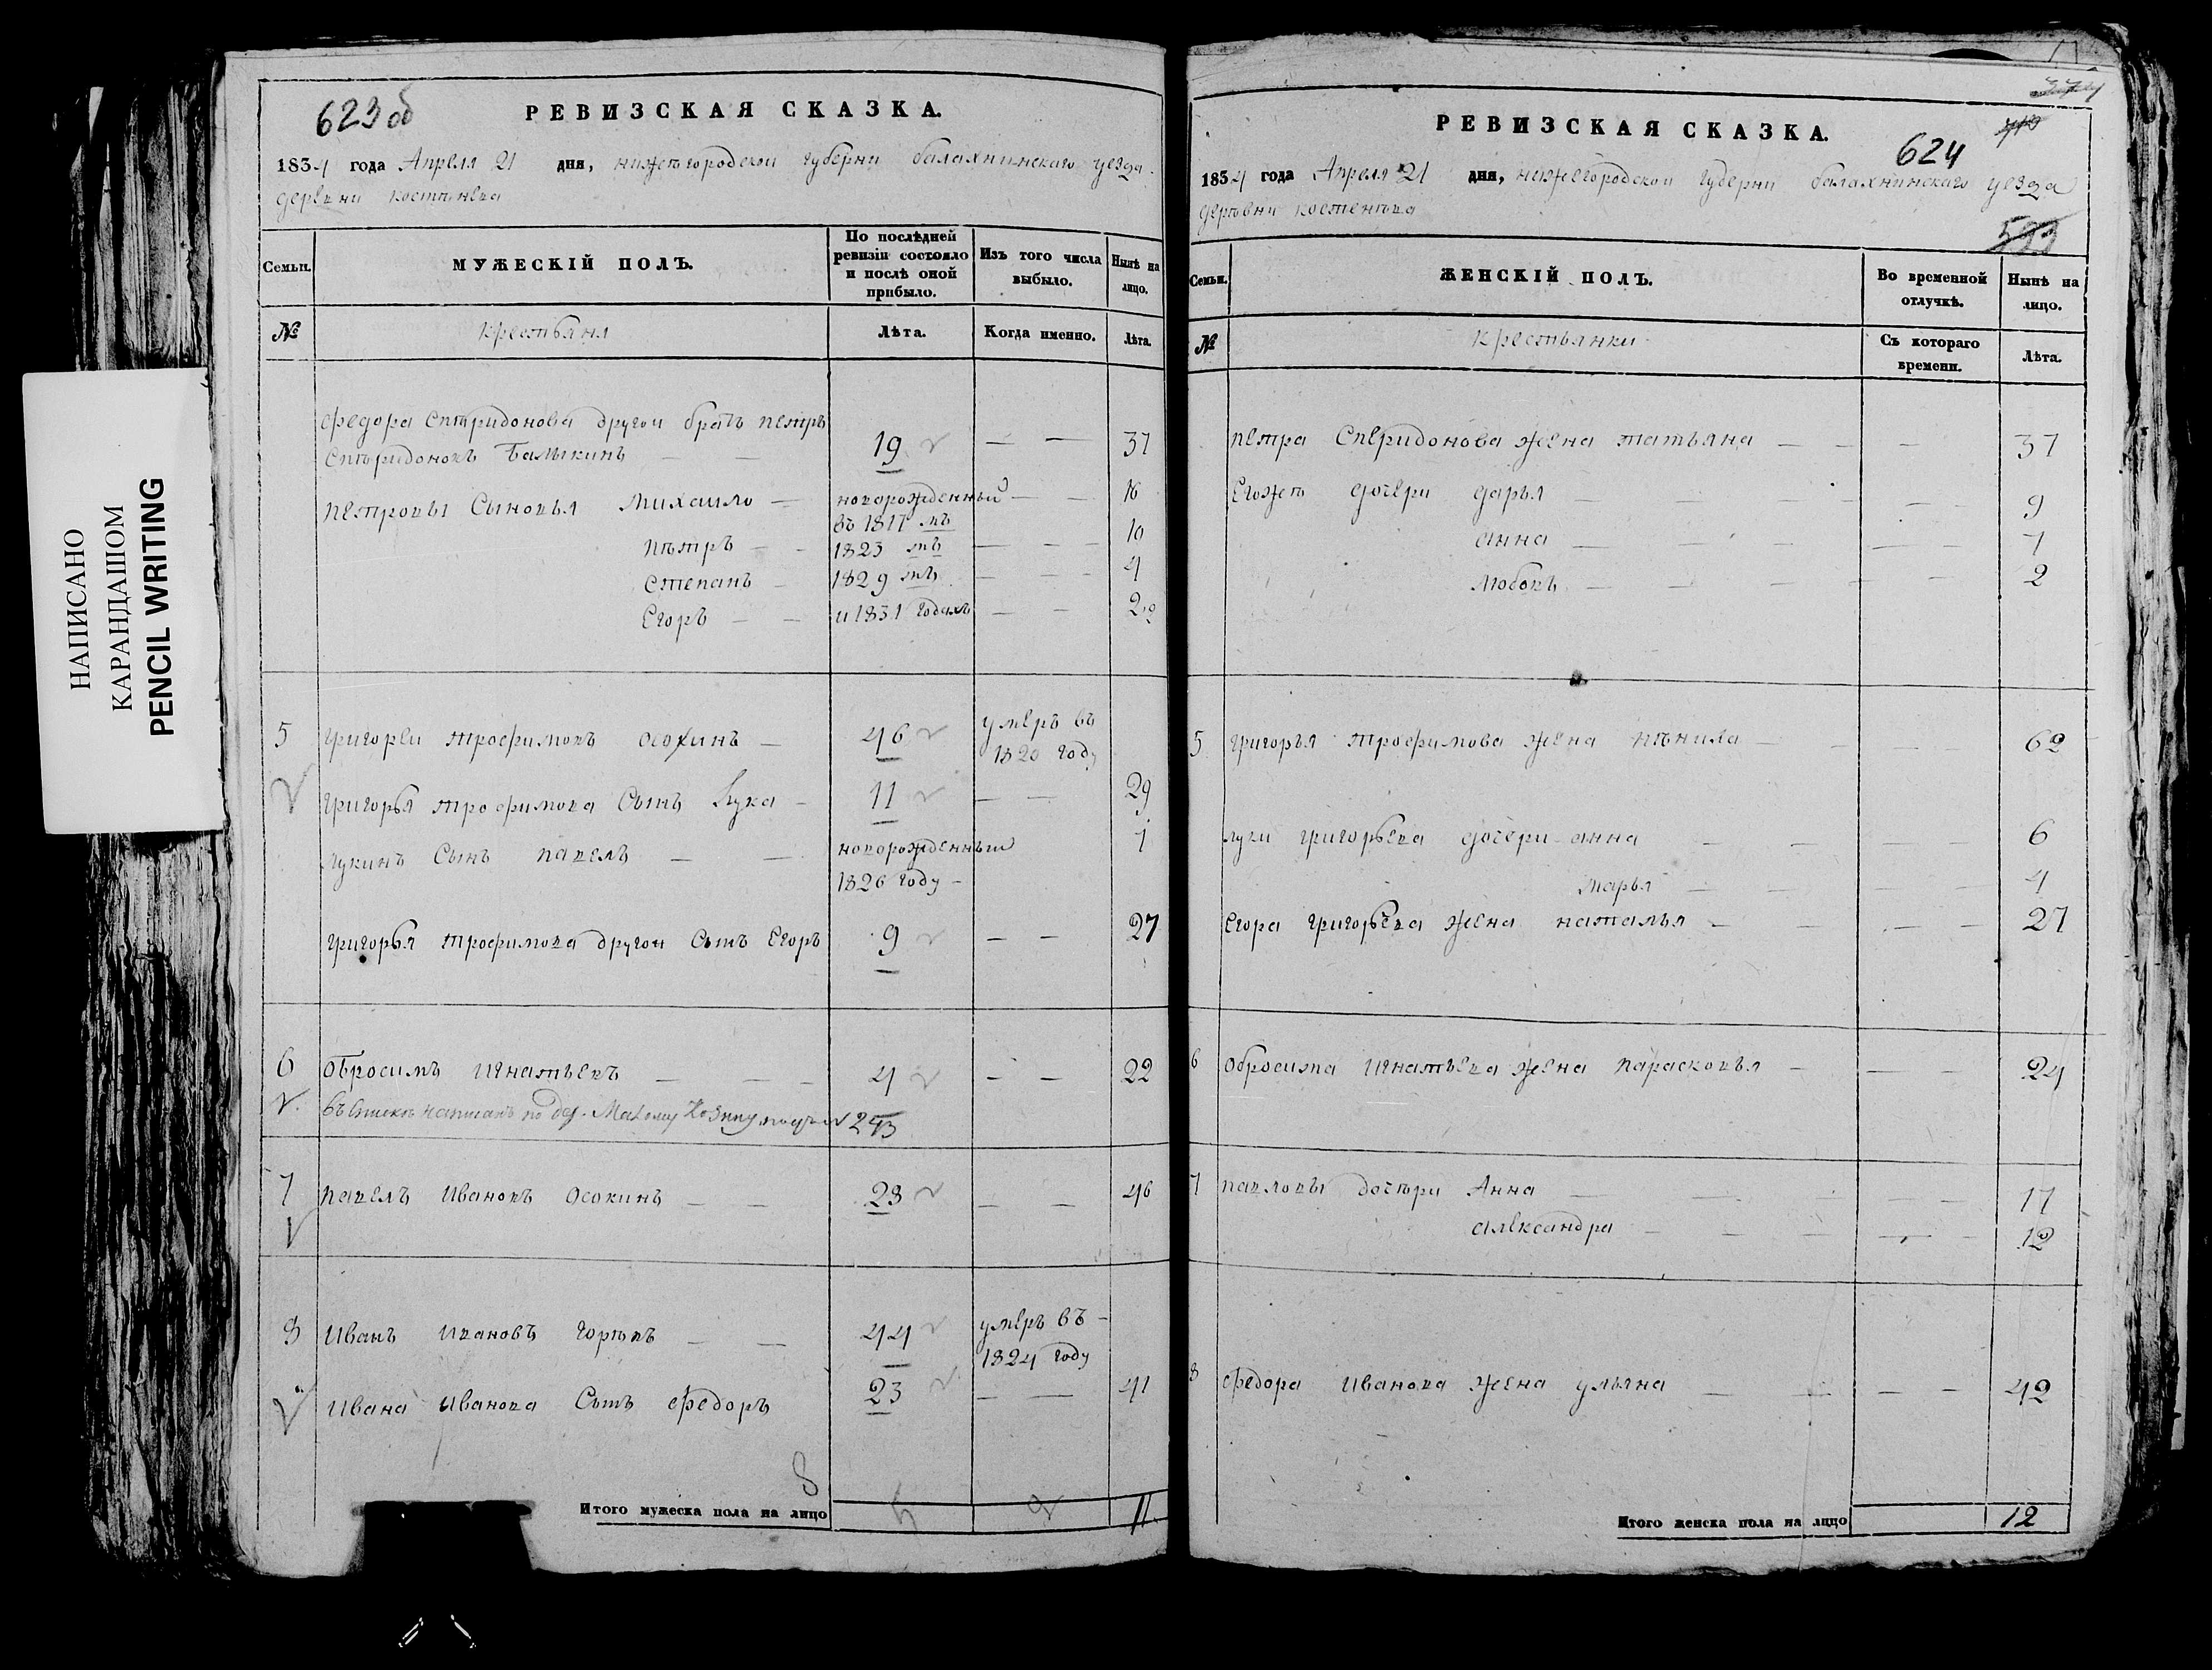 НАПИСАНО
КАРАНДАШОМ
PENCIL WRITING
623 об
РЕВИЗСКАЯ СКАЗКА.
1834 года Апреля 21 дня, нижегородскои губерни балахнинскаго уезда
деревни
Семьи. МУЖЕСКІЙ ПОЛЪ. По послѣдней ревизіи состояло и послѣ оной прибыло. Изъ того числа выбыло. Нынѣ на лицо.
№ крестьяня Лѣта. Когда именно. Лѣта.
федора спиридонова другои братъ петръ
Балыкинъ — — 19 — — 37
петровы сыновья михаило — новорожденный — — 16
въ 1817 мъ
петръ — — 1823 мъ — — — 10
степанъ — 1829 мъ — — — 4
Егоръ — — и 1831 годахъ — — 2
5 григореи трофимовъ осохинъ — 46 умеръ въ
1820 году
григорья трофимова сынъ лука — 11 — — 29
лукинъ сынъ павелъ — — новорожденныи 7
1826 году —
григорья трофимова другои сынъ Егоръ 9 — — 27
6 обросимъ игнатьевъ — — — 4 — — 22
7 павелъ ивановъ осокинъ — — 28 — — 46
8 иванъ ивановъ — — 44 умеръ въ —
1824 году
ивана иванова сынъ федоръ 23 — — 41
8
Итого мужеска пола на лицо 11
374
РЕВИЗСКАЯ СКАЗКА.
624
1834 года Апреля 21 дня, нижегородскои губерни балахнинскаго уезда
Семьи. ЖЕНСКІЙ ПОЛЪ. Во временной отлучкѣ. Нынѣ на лицо.
№ крестьянки Съ котораго времени. Лѣта.
петра спиридонова жена татьяна — — — 37
Егожъ дочери дарья — — — — — 9
анна — — — — — 7
любовь — — — — — 2
5 григорья трофимова жена — — — 62
луки григорьева дочери анна — — — — 6
марья — — — — 4
Егора григорьева жена наталья — — — — 27
6 обросима игнатьева жена парасковья — — — 24
7 павловы дочери Анна — — — — — 17
александра — — — — — 12
8 федора иванова жена ульяна — — — — 42
Итого женска пола на лицо 12